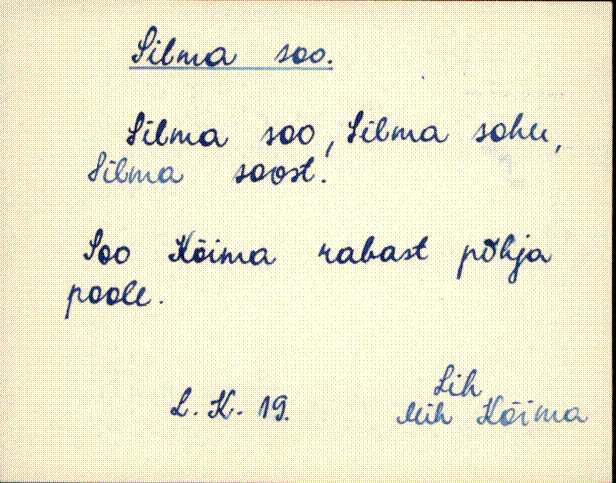 Silma soo.
Silma soo, Silma sohu,
Silma soost.
Soo Kõima rabast põhja
poole.
L. K. 19.
Lih
Mih Kõima